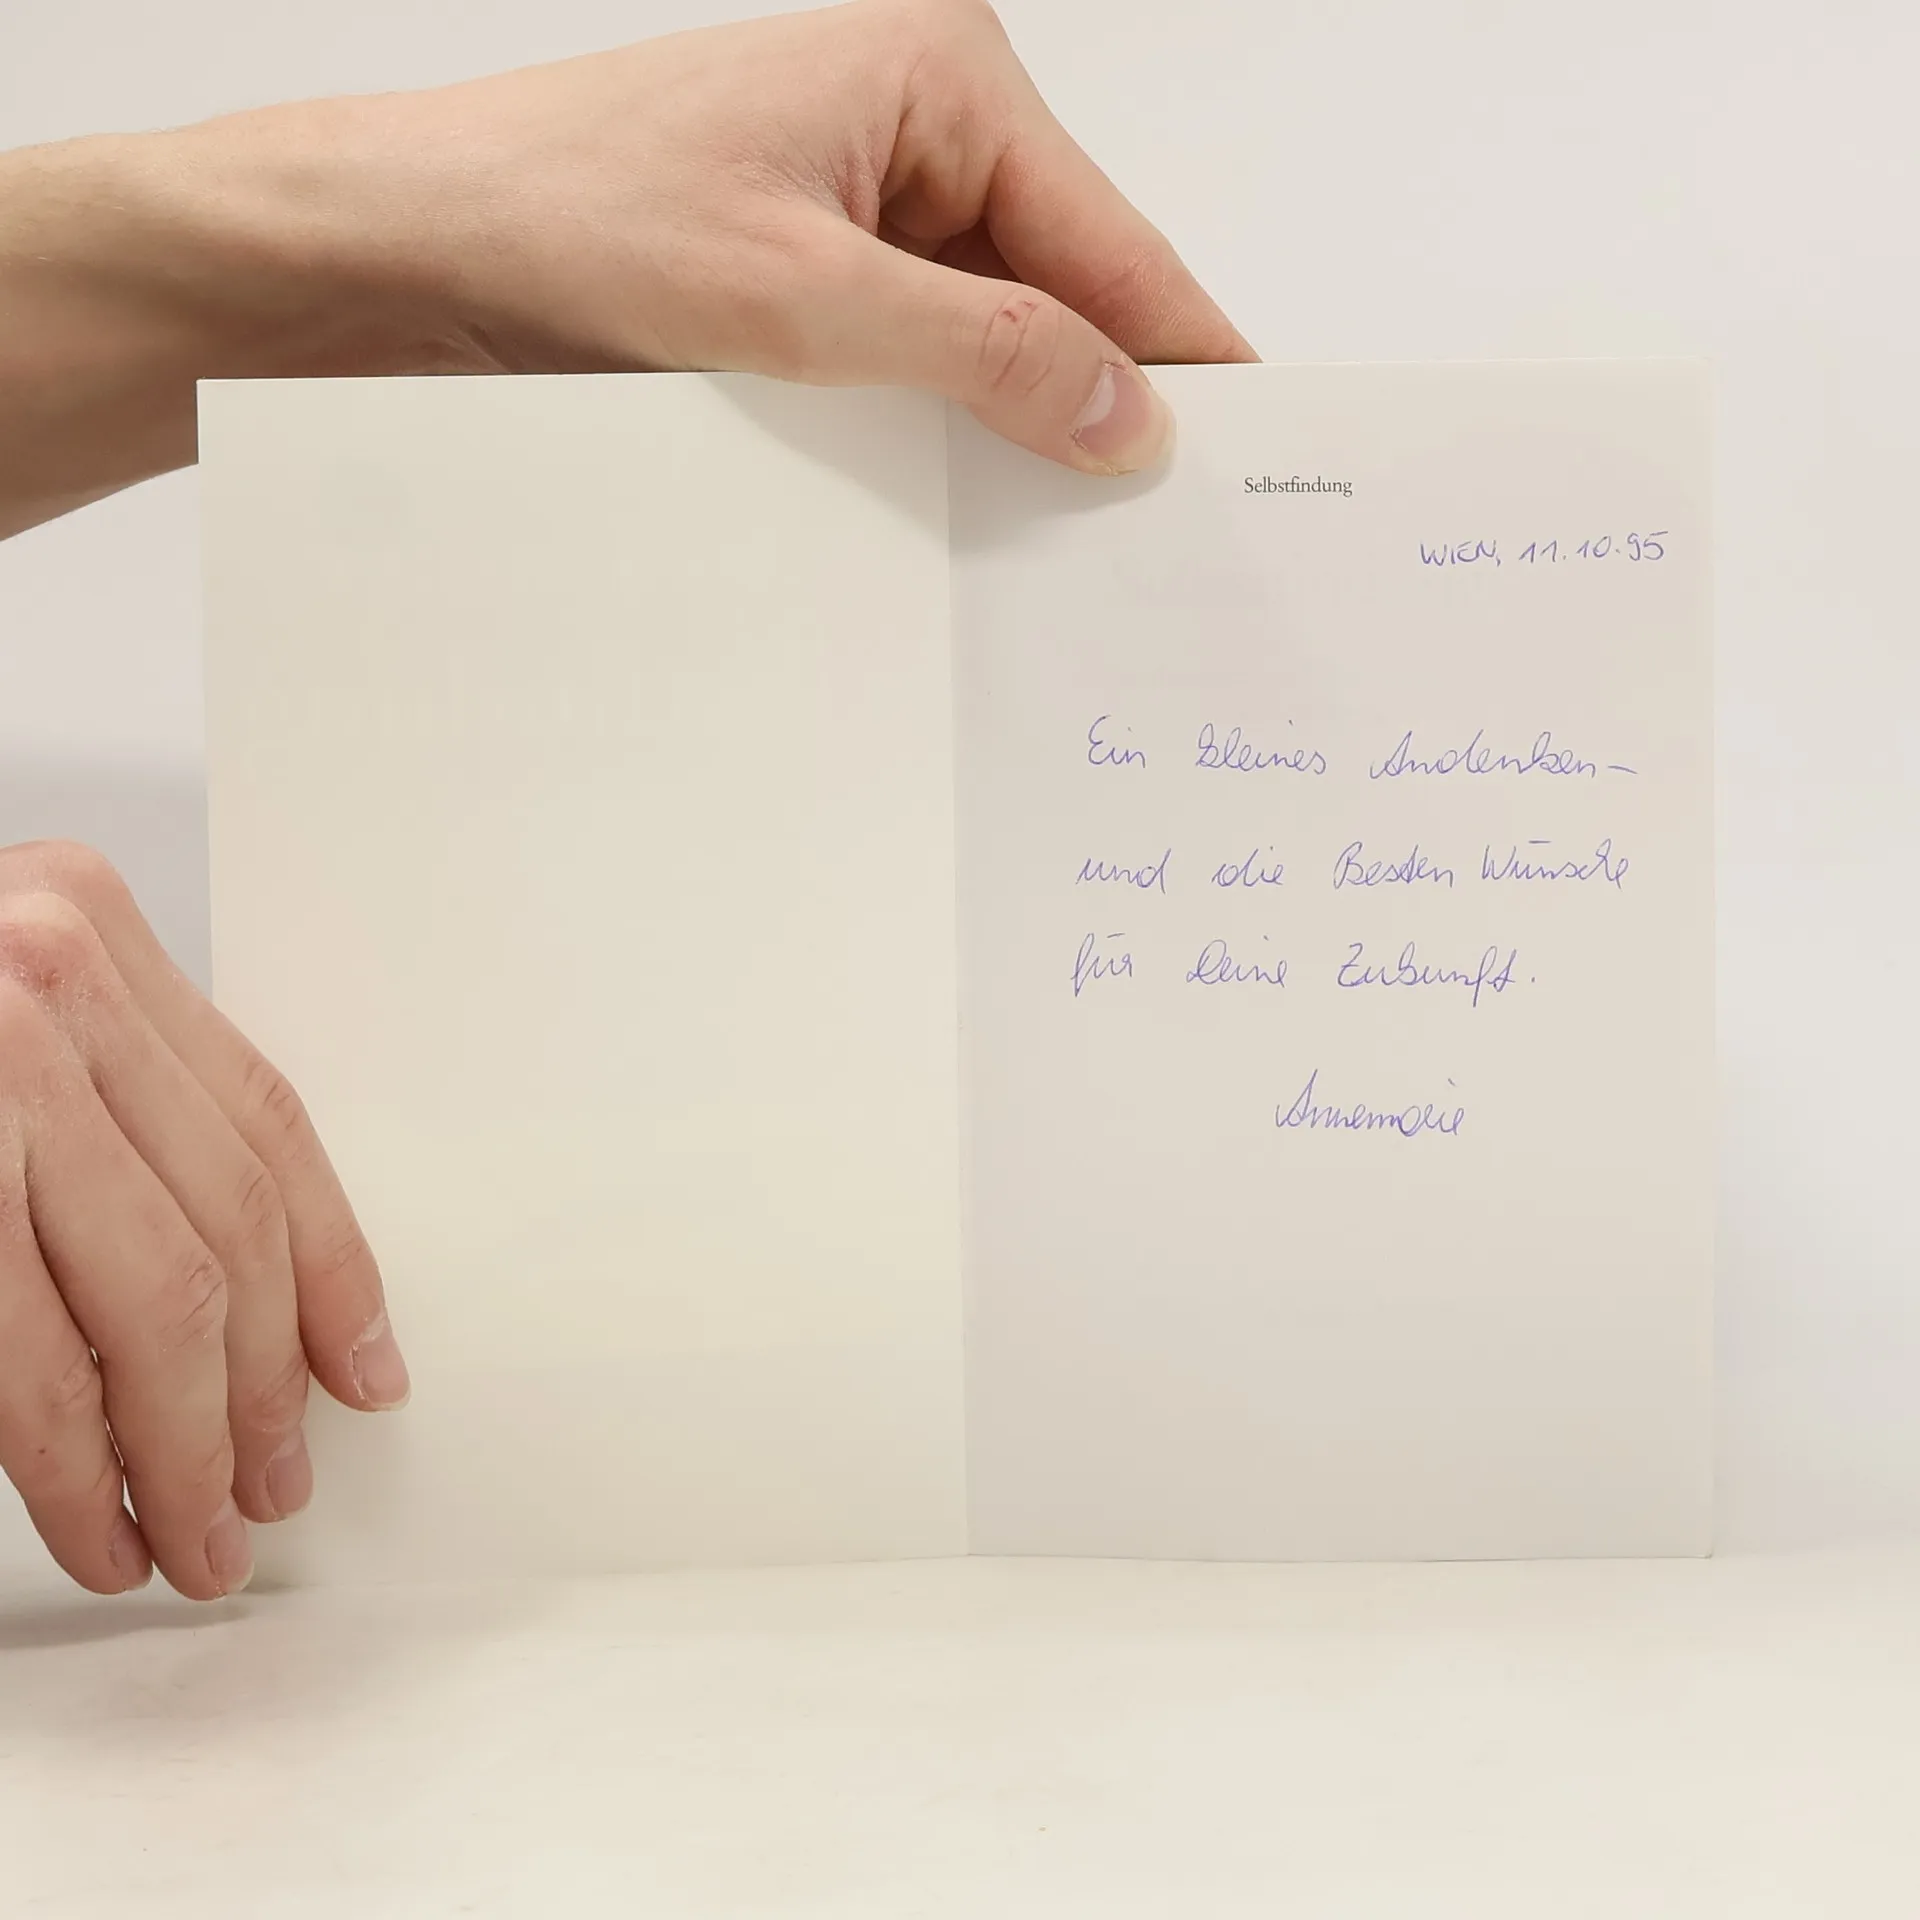 Selbstfindung
WIEN, 11.10.95
Ein kleines Andenken –
und die Besten Wünsche
für Deine Zukunft.
Annemarie